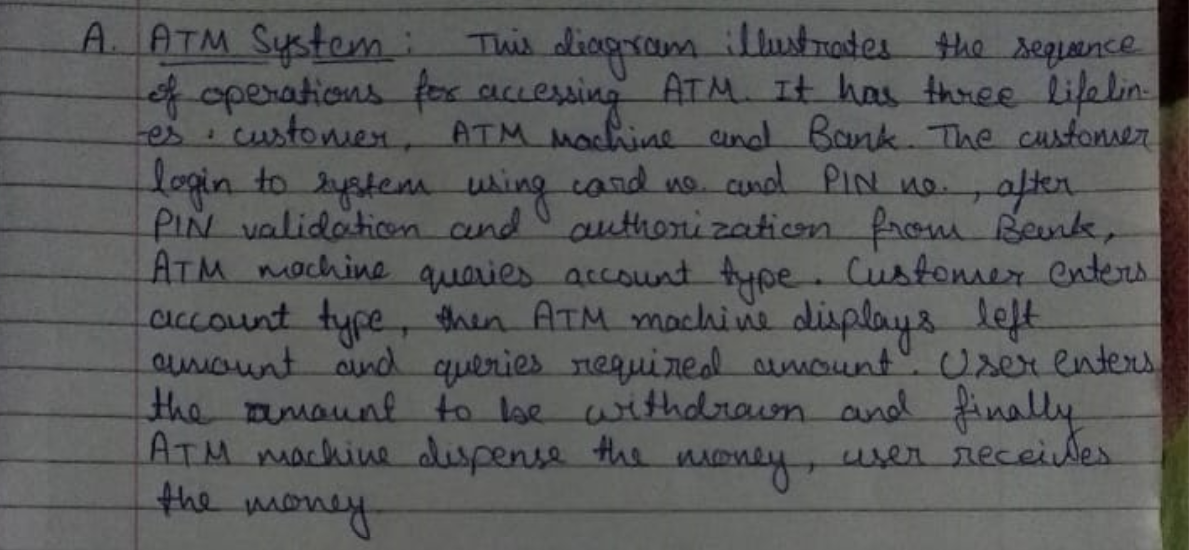 A. ATM System : This diagram illustrates the sequence
of operations for accessing ATM. It has three lifelin-
-es : customer, ATM Machine and Bank. The customer
login to system using card no. and PIN no., after
PIN validation and authorization from Bank,
ATM machine queries account type. Customer enters
account type, then ATM machine displays left
amount and queries required amount. User enters
the amount to be withdrawn and finally
ATM machine dispense the money, user receives
the money